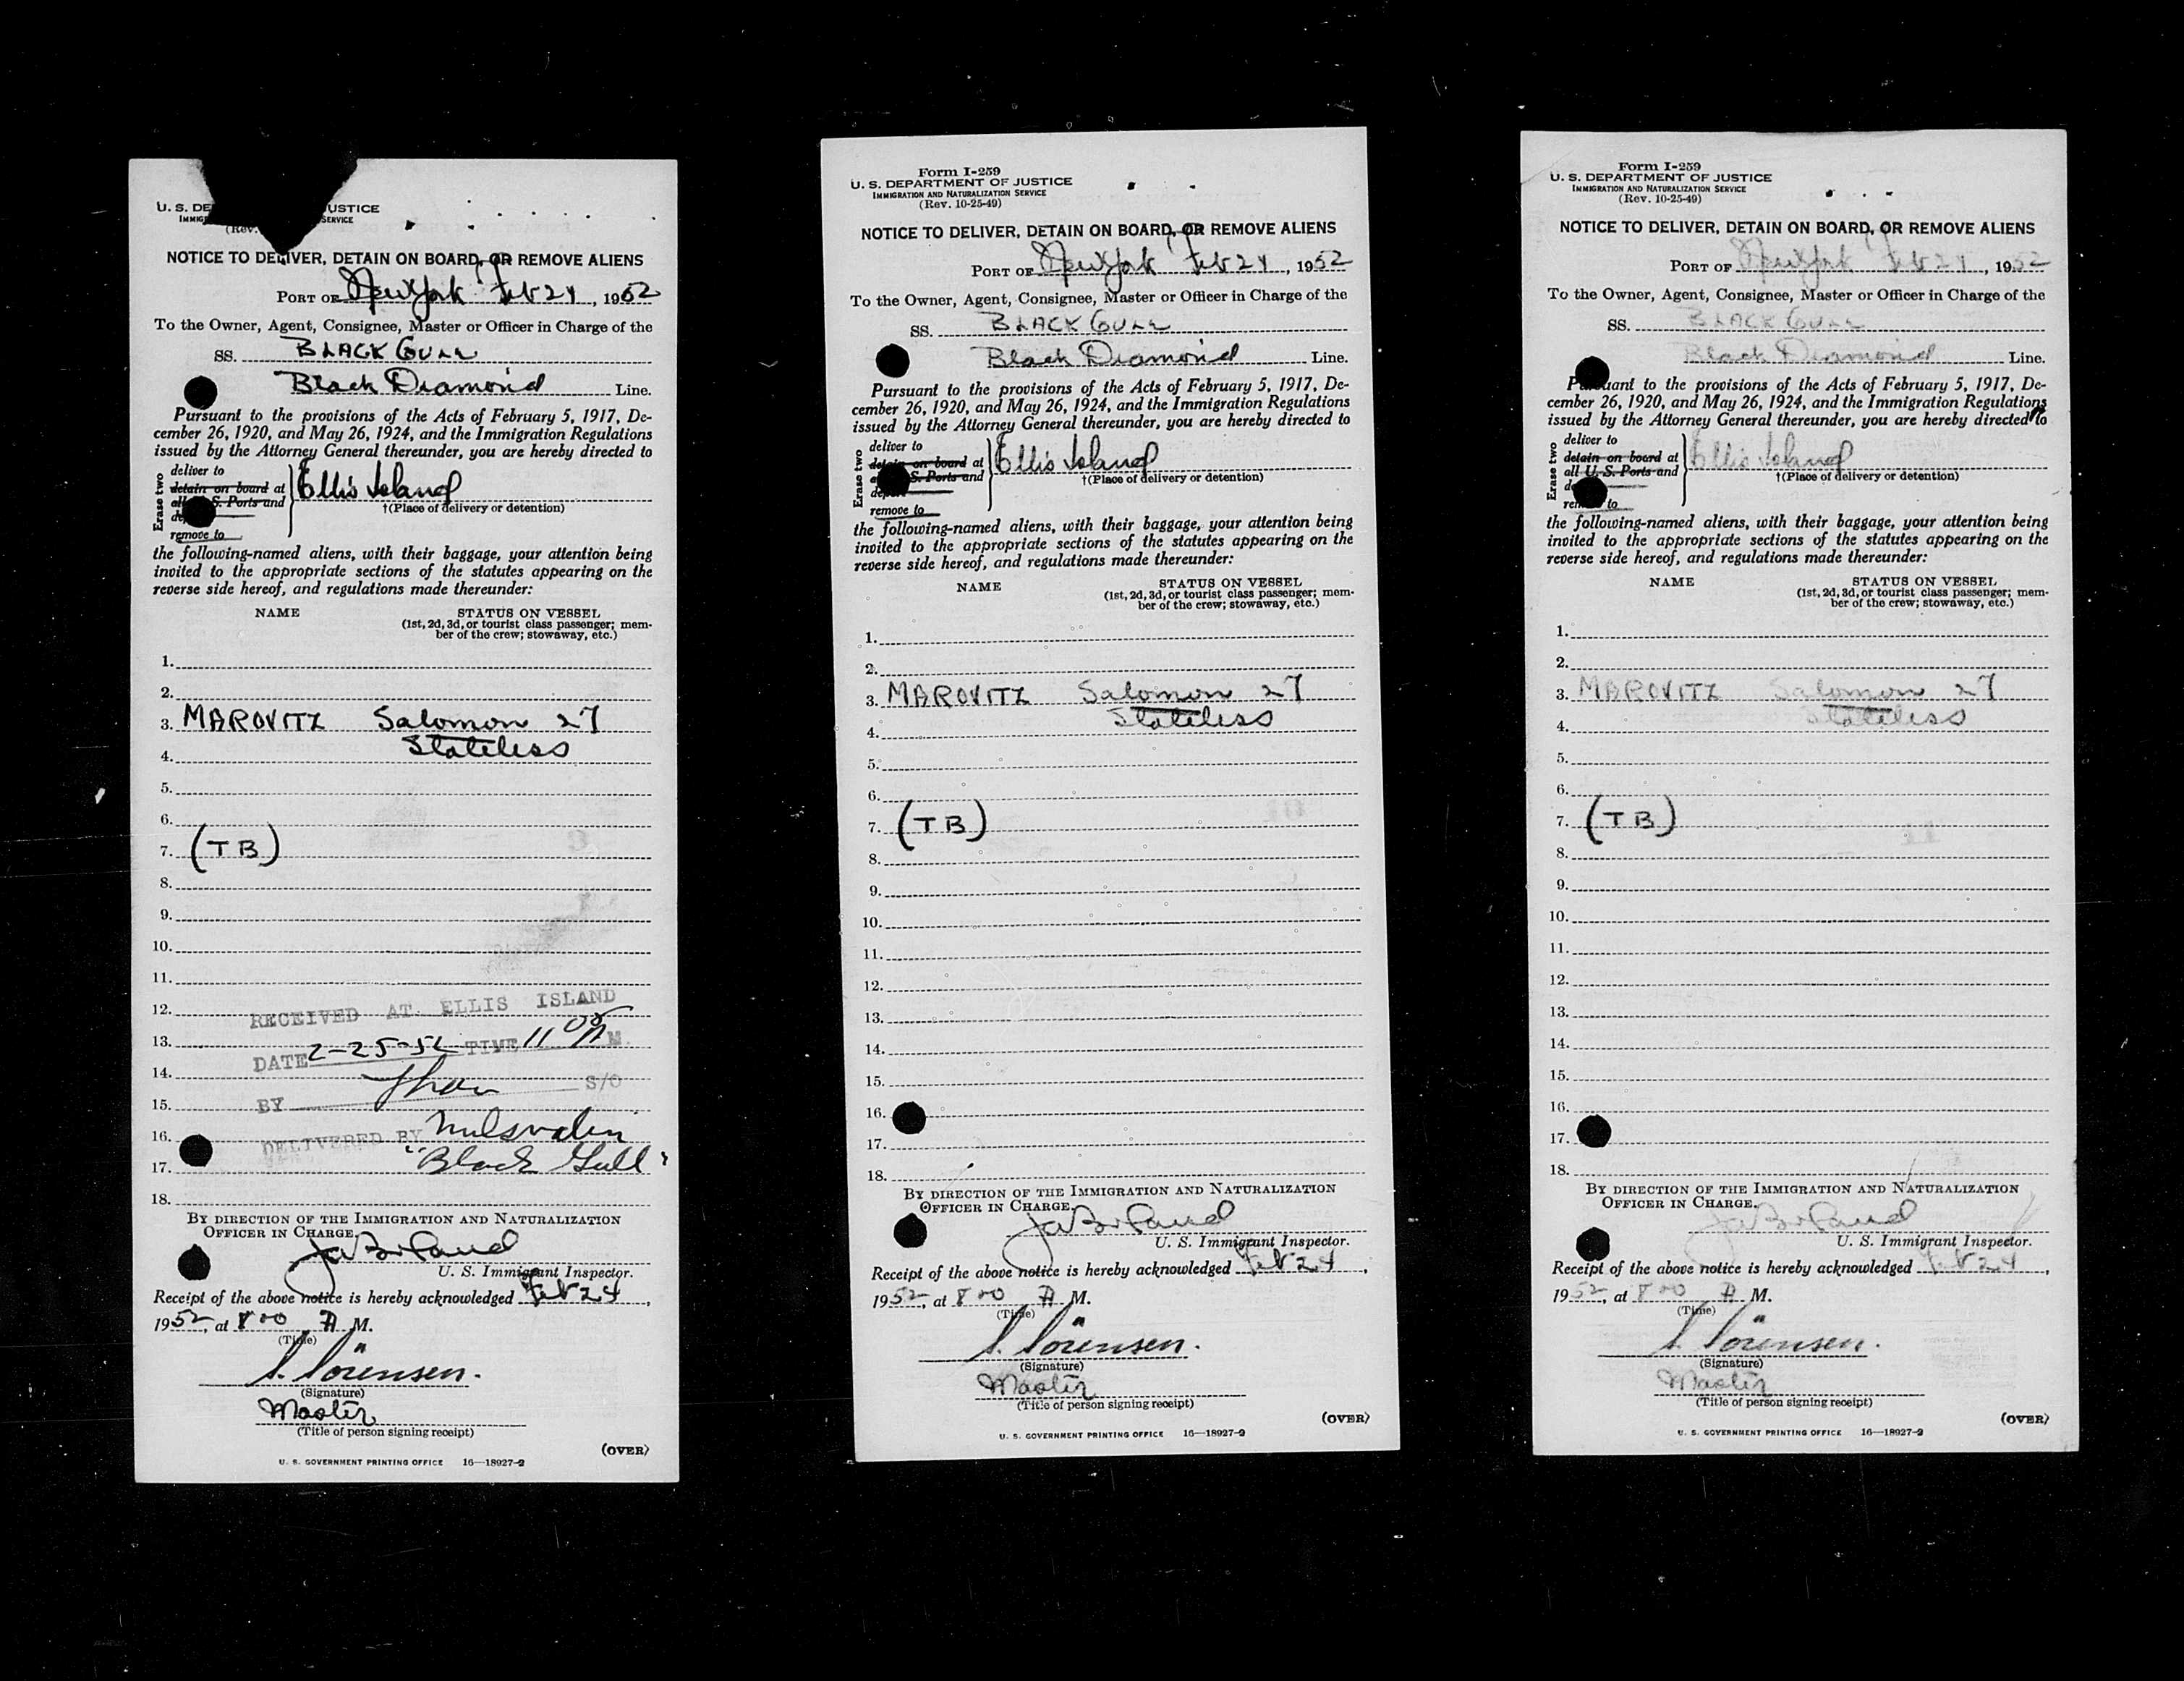 U. S. DE USTICE
IMMIG SERVICE
(Rev.
NOTICE TO DELIVER, DETAIN ON BOARD, OR REMOVE ALIENS
PORT OF New York Feb 24, 1952
To the Owner, Agent, Consignee, Master or Officer in Charge of the
SS. BLACK GULL
Black Diamond Line.
Pursuant to the provisions of the Acts of February 5, 1917, De-
cember 26, 1920, and May 26, 1924, and the Immigration Regulations
issued by the Attorney General thereunder, you are hereby directed to
Erase two
deliver to
detain on board at Ellis Island
all S. Ports and
†(Place of delivery or detention)
de
remove to
the following-named aliens, with their baggage, your attention being
invited to the appropriate sections of the statutes appearing on the
reverse side hereof, and regulations made thereunder:
NAME STATUS ON VESSEL
(1st, 2d, 3d, or tourist class passenger; mem-
ber of the crew; stowaway, etc.)
1.
2.
3. MAROVITZ Salomon 27
Stateless
4.
5.
6.
7. (TB)
8.
9.
10.
11.
12. RECEIVED AT ELLIS ISLAND
13. DATE 2-25-52 TIME 11 00 A M
14.
BY S/O
15.
16. DELIVERED BY
17. "Black Gull"
18.
BY DIRECTION OF THE IMMIGRATION AND NATURALIZATION
OFFICER IN CHARGE.
U. S. Immigrant Inspector.
Receipt of the above notice is hereby acknowledged Feb 24,
1952, at 8 00 A M.
(Time)
S. Sörensen.
(Signature)
Master
(Title of person signing receipt)
(OVER)
U. S. GOVERNMENT PRINTING OFFICE 16—18927-2
Form I-259
U. S. DEPARTMENT OF JUSTICE
IMMIGRATION AND NATURALIZATION SERVICE
(Rev. 10-25-49)
NOTICE TO DELIVER, DETAIN ON BOARD, OR REMOVE ALIENS
PORT OF New York Feb 24, 1952
To the Owner, Agent, Consignee, Master or Officer in Charge of the
SS. BLACK GULL
Black Diamond Line.
Pursuant to the provisions of the Acts of February 5, 1917, De-
cember 26, 1920, and May 26, 1924, and the Immigration Regulations
issued by the Attorney General thereunder, you are hereby directed to
Erase two
deliver to
detain on board at Ellis Island
a S. Ports and
†(Place of delivery or detention)
depor
remove to
the following-named aliens, with their baggage, your attention being
invited to the appropriate sections of the statutes appearing on the
reverse side hereof, and regulations made thereunder:
NAME STATUS ON VESSEL
(1st, 2d, 3d, or tourist class passenger; mem-
ber of the crew; stowaway, etc.)
1.
2.
3. MAROVITZ Salomon 27
Stateless
4.
5.
6.
7. (TB)
8.
9.
10.
11.
12.
13.
14.
15.
16.
17.
18.
BY DIRECTION OF THE IMMIGRATION AND NATURALIZATION
OFFICER IN CHARGE.
U. S. Immigrant Inspector.
Receipt of the above notice is hereby acknowledged Feb 24,
1952, at 8 00 A M.
(Time)
S. Sörensen.
(Signature)
Master
(Title of person signing receipt)
(OVER)
U. S. GOVERNMENT PRINTING OFFICE 16—18927-2
Form I-259
U. S. DEPARTMENT OF JUSTICE
IMMIGRATION AND NATURALIZATION SERVICE
(Rev. 10-25-49)
NOTICE TO DELIVER, DETAIN ON BOARD, OR REMOVE ALIENS
PORT OF New York Feb 24, 1952
To the Owner, Agent, Consignee, Master or Officer in Charge of the
SS. BLACK GULL
Black Diamond Line.
Pursuant to the provisions of the Acts of February 5, 1917, De-
cember 26, 1920, and May 26, 1924, and the Immigration Regulations
issued by the Attorney General thereunder, you are hereby directed to
Erase two
deliver to
detain on board at Ellis Island
all U. S. Ports and
†(Place of delivery or detention)
de
remove to
the following-named aliens, with their baggage, your attention being
invited to the appropriate sections of the statutes appearing on the
reverse side hereof, and regulations made thereunder:
NAME STATUS ON VESSEL
(1st, 2d, 3d, or tourist class passenger; mem-
ber of the crew; stowaway, etc.)
1.
2.
3. MAROVITZ Salomon 27
Stateless
4.
5.
6.
7. (TB)
8.
9.
10.
11.
12.
13.
14.
15.
16.
17.
18.
BY DIRECTION OF THE IMMIGRATION AND NATURALIZATION
OFFICER IN CHARGE.
U. S. Immigrant Inspector.
Receipt of the above notice is hereby acknowledged Feb 24,
1952, at 8 00 A M.
(Time)
S. Sörensen.
(Signature)
Master
(Title of person signing receipt)
(OVER)
U. S. GOVERNMENT PRINTING OFFICE 16—18927-2